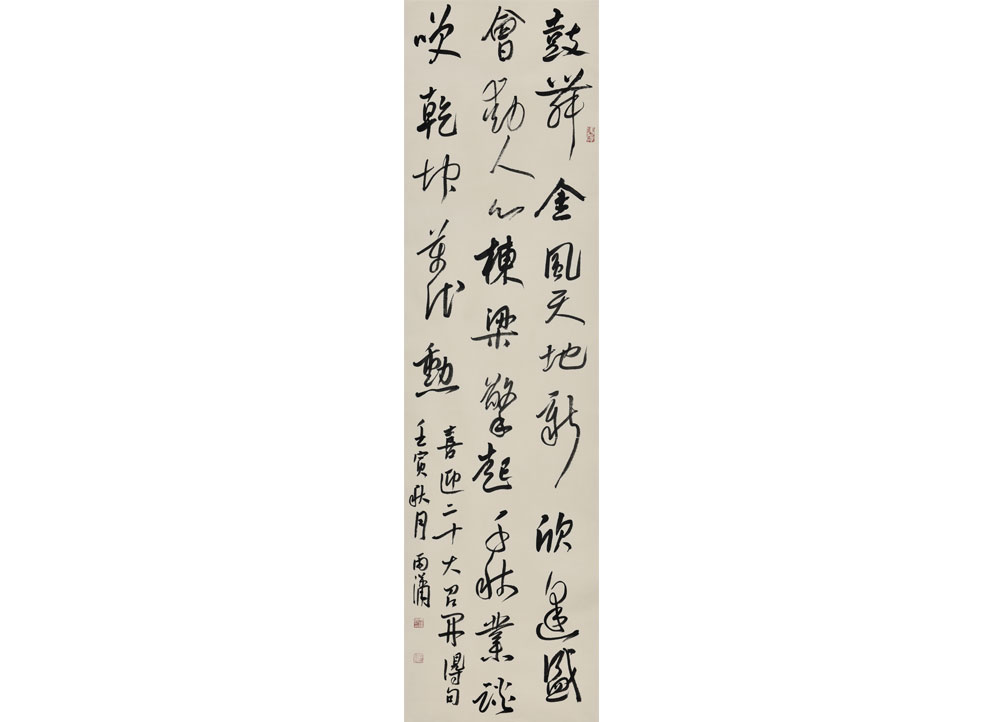 鼓舞金風天地新欣逢盛
會動人心棟梁擎起千秋業談
咲乾坤萬代勳
喜迎二十大召開得句
壬寅秋月雨瀟